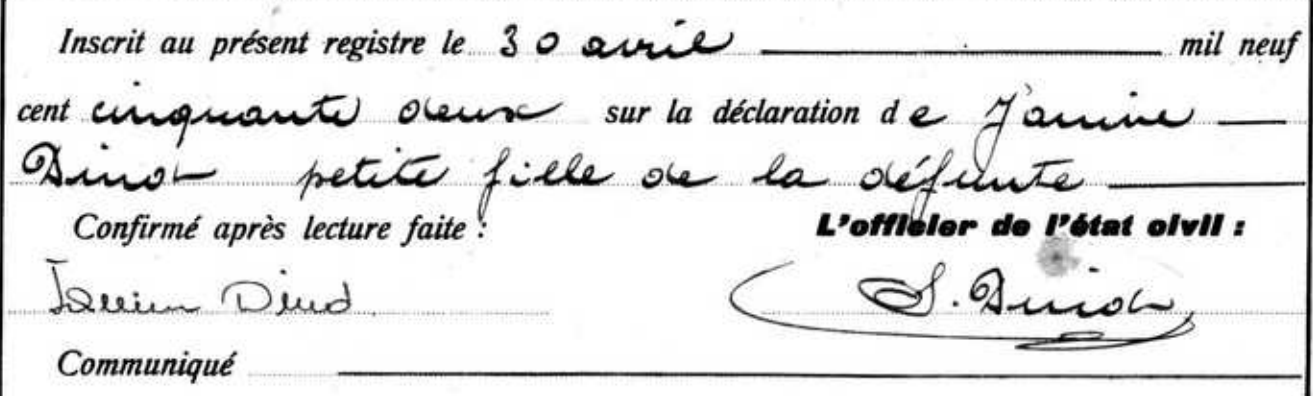 Inscrit au présent registre le 30 avril mil neuf
cent cinquante deux sur la déclaration de Janine
Dind petite fille de la défunte
Confirmé après lecture faite : L'officier de l'état civil :
Janine Dind Dind
Communiqué